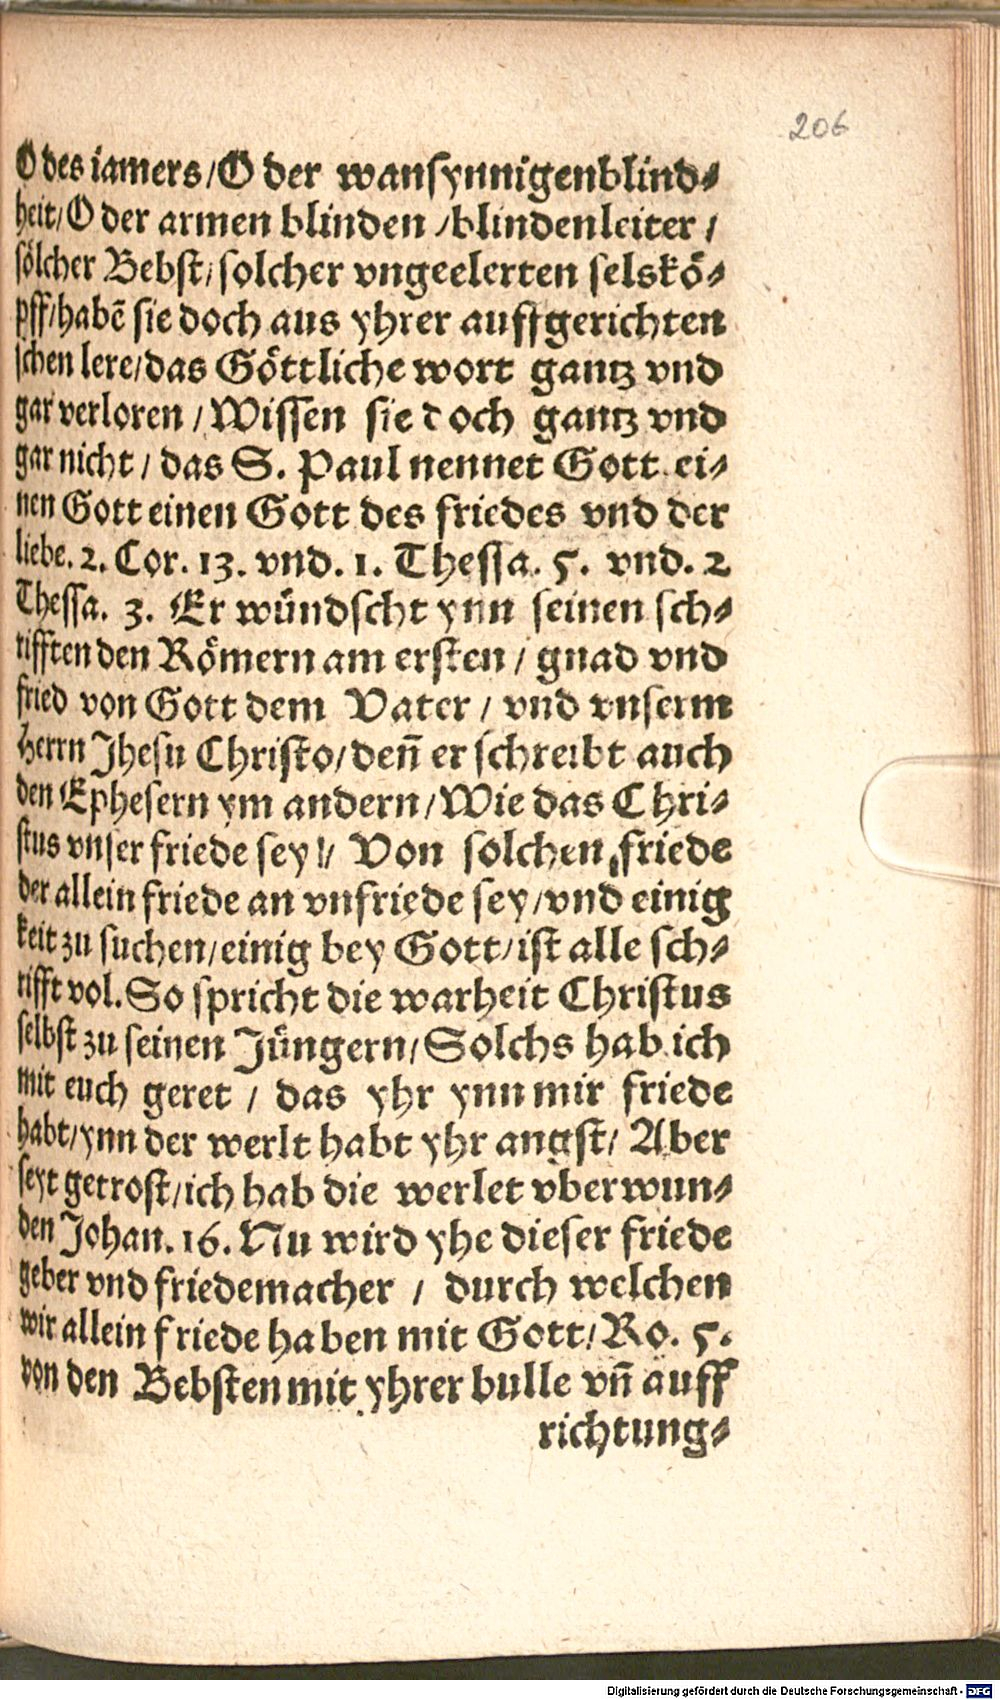 206
O des iamers/O der wansynnigenblind⸗
heit/O der armen blinden /blindenleiter /
sölcher Bebst/solcher vngeelerten selskö⸗
pff/habē sie doch aus yhrer auffgerichten
schen lere/das Göttliche wort gantz vnd
gar verloren /Wissen sie doch gantz vnd
gar nicht / das S. Paul nennet Gott ei⸗
nen Gott einen Gott des friedes vnd der
liebe. 2. Cor. 13. vnd. 1. Thessa. 5. vnd. 2
Thessa. 3. Er wündscht ynn seinen sch⸗
rifften den Römern am ersten / gnad vnd
fried von Gott dem Vater / vnd vnserm
Herrn Jhesu Christo/deñ er schreibt auch
den Ephesern ym andern/Wie das Chri⸗
stus vnser friede sey!/ Von solchen friede
der allein friede an vnfriede sey/vnd einig
keit zu suchen/einig bey Gott/ist alle sch⸗
rifft vol. So spricht die warheit Christus
selbst zu seinen Jüngern/Solchs hab ich
mit euch geret / das yhr ynn mir friede
habt/ynn der werlt habt yhr angst/ Aber
seyt getrost/ich hab die werlet vberwun⸗
den Johan. 16. Nu wird yhe dieser friede
geber vnd friedemacher / durch welchen
wir allein friede haben mit Gott/Ro. 5.
von den Bebsten mit yhrer bulle vñ auff
richtung⸗
Digitalisierung gefördert durch die Deutsche Forschungsgemeinschaft - DFG